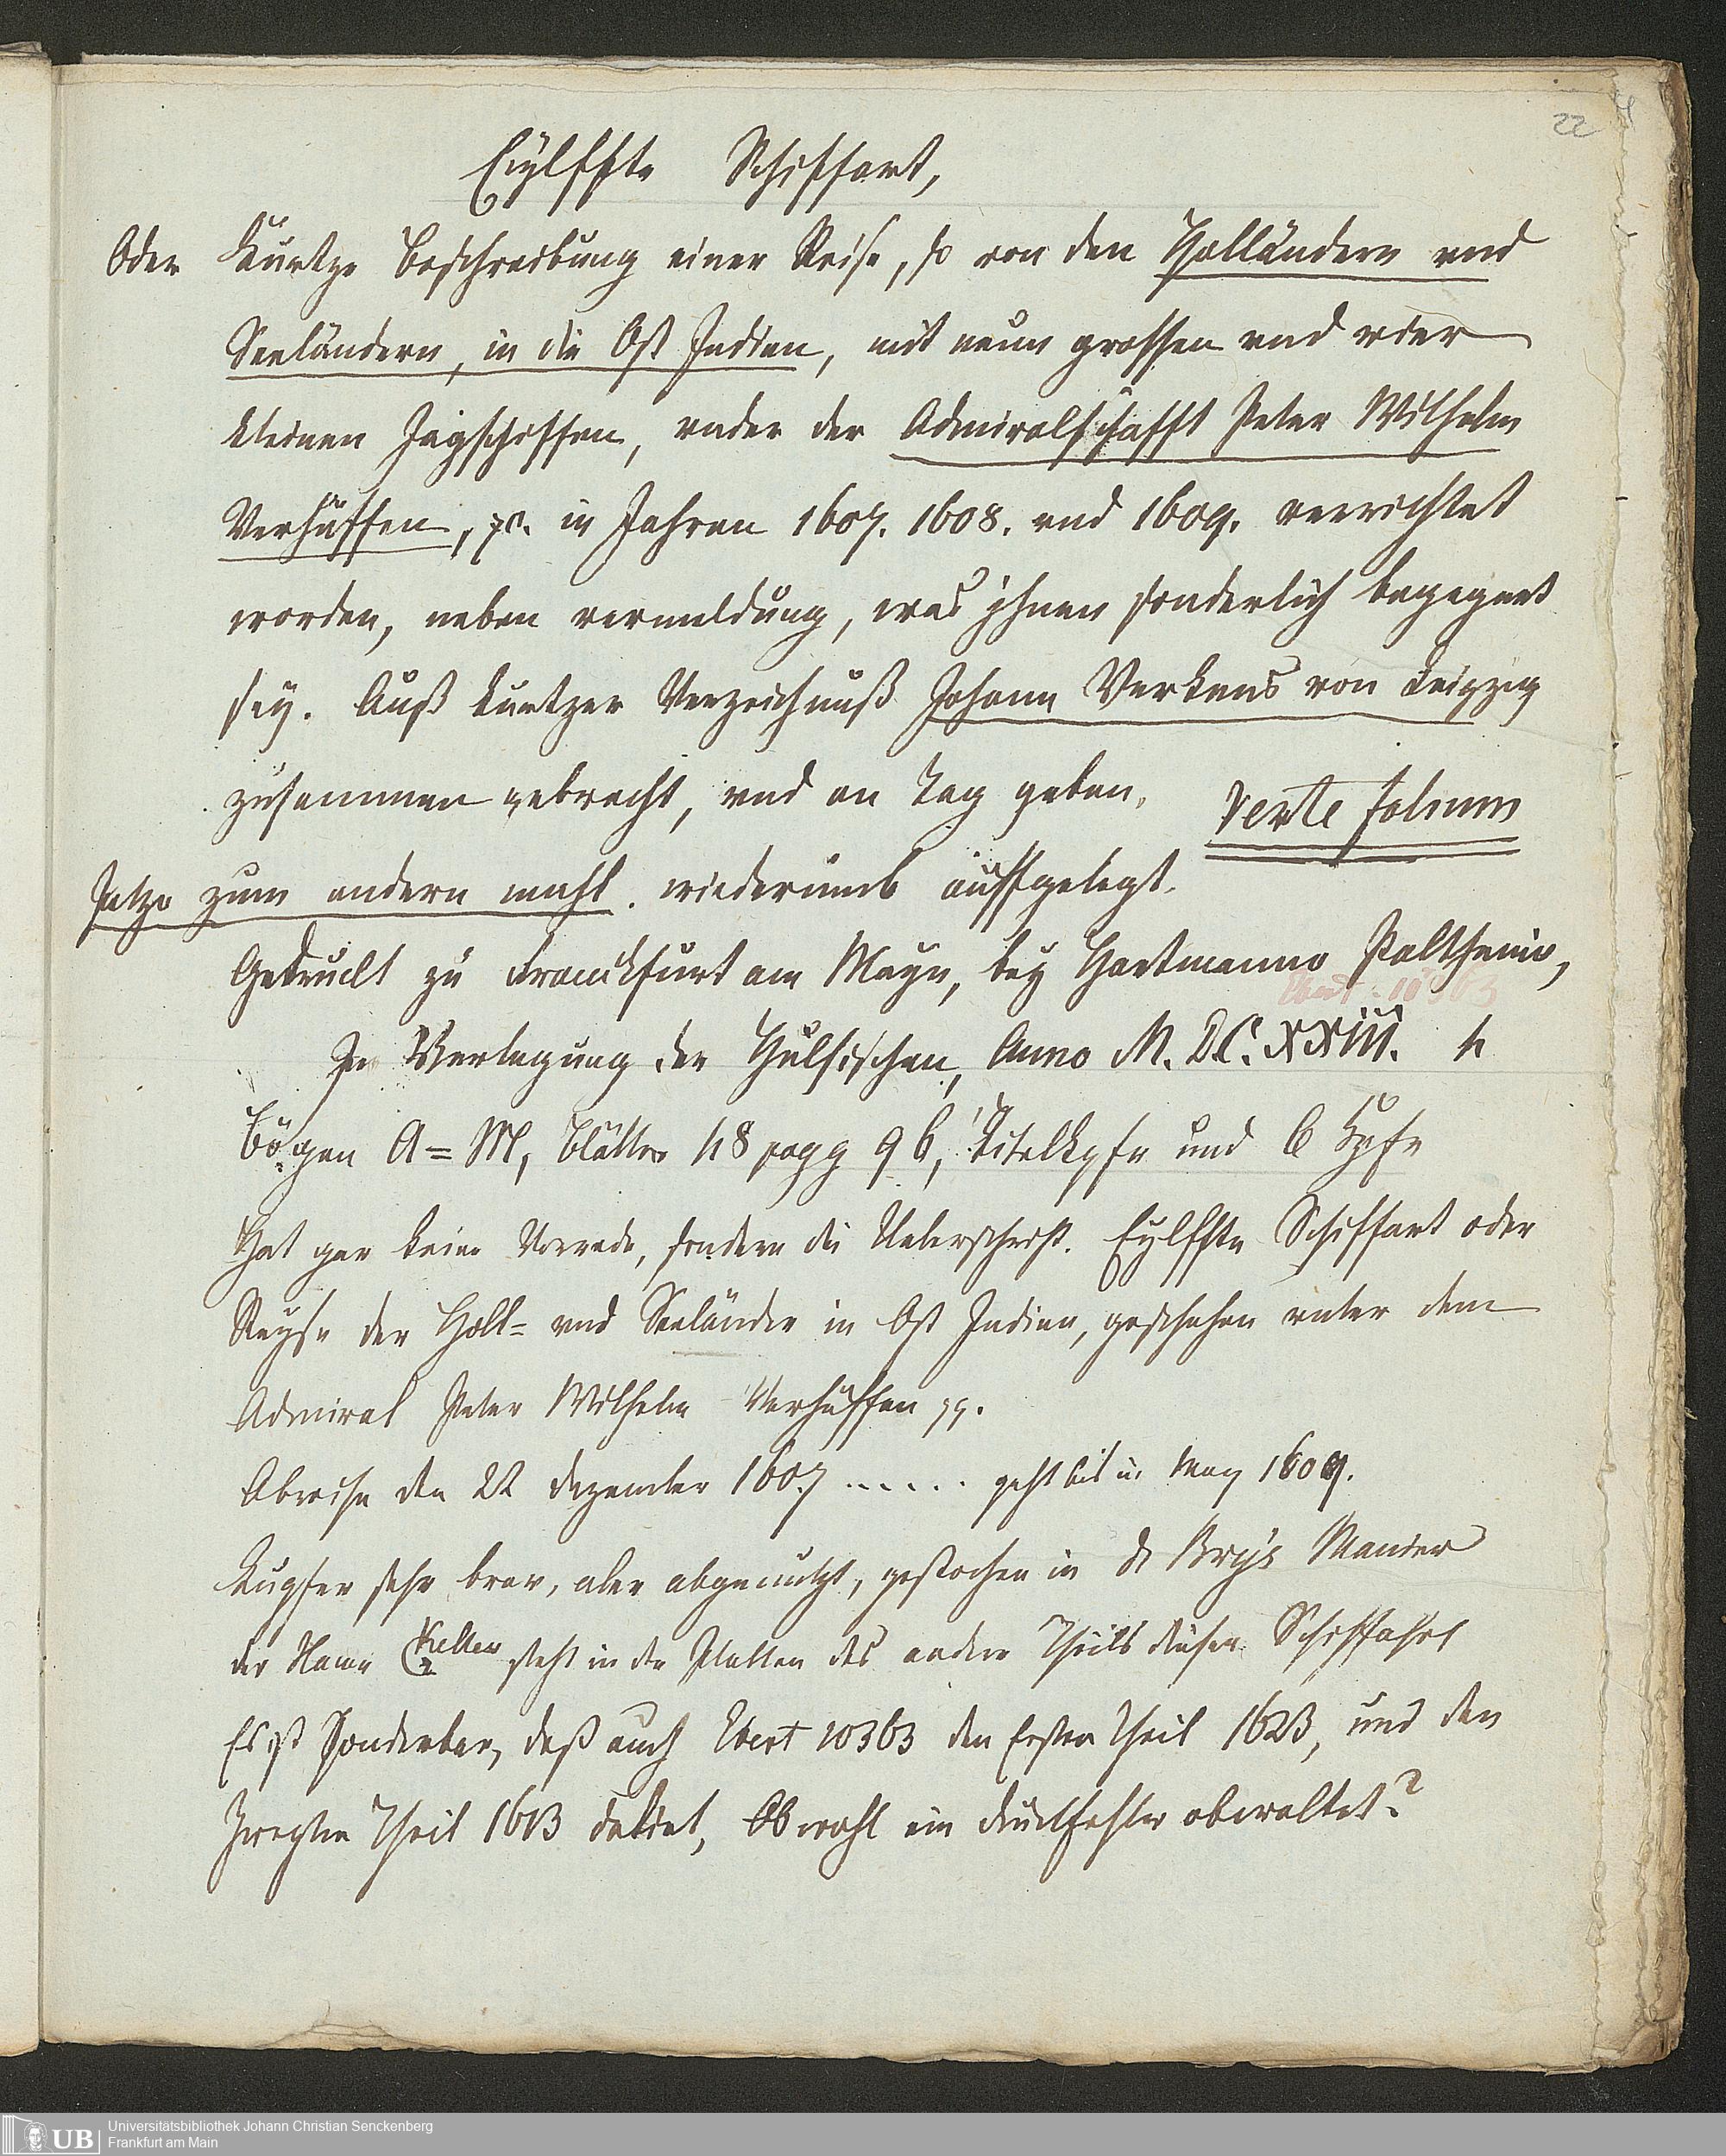 22
Eÿlffte Schiffart,
Oder Kurtze Beschreibung einer Reise, so von den Holländern vnd
Seeländern, in die Ost Indien, mit neun grossen vnd vier
kleinen Jagschiffen, vnder der Admiralschafft Peter Wilhelm
Verhuffen, ꝛc. in Jahren 1607. 1608. vnd 1609. verrichtet
worden, neben vermeldung, was jhnen sonderlich begegnet
seÿ. Auß kurtzer Verzeichnuß Johann Verkens von Leipzig
zusammen gebracht, vnd an Tag geben.
Verte folium
Jetzo zum andern mahl. wiederumb auffgelegt.
Gedruckt zu Franckfurt am Mayn, beÿ Hartmanno Palthenio,
Ebert. 10363
In Verlegung der Hulsischen, Anno M.DC.XXIII. 4
Bögen A=M, Blätter 48 pagg 96, Titelkpfr und 6 Kpfr
Hat gar keine Vorrede, sondern die Ueberschrift. Eylffte Schiffart oder
Reyse der Holl= vnd Seeländer in Ost Indien, geschehen vnter dem
Admiral Peter Wilhelm Verhuffen pp.
Abreise den 22 Dezember 1607 ...... geht bis in May 1609.
Kupfer sehr brav, aber abgenutzt, gestochen in de Bry's Manier
der Name Keller steht in den Platten des andern Theils dieser Schiffahrt
Es ist sonderbar, daß auch Ebert 10363 den Ersten Theil 1623, und den
Zweyten Theil 1613 datirt, Ob wohl ein Druckfehler obwaltet?
UB Universitätsbibliothek Johann Christian Senckenberg
Frankfurt am Main